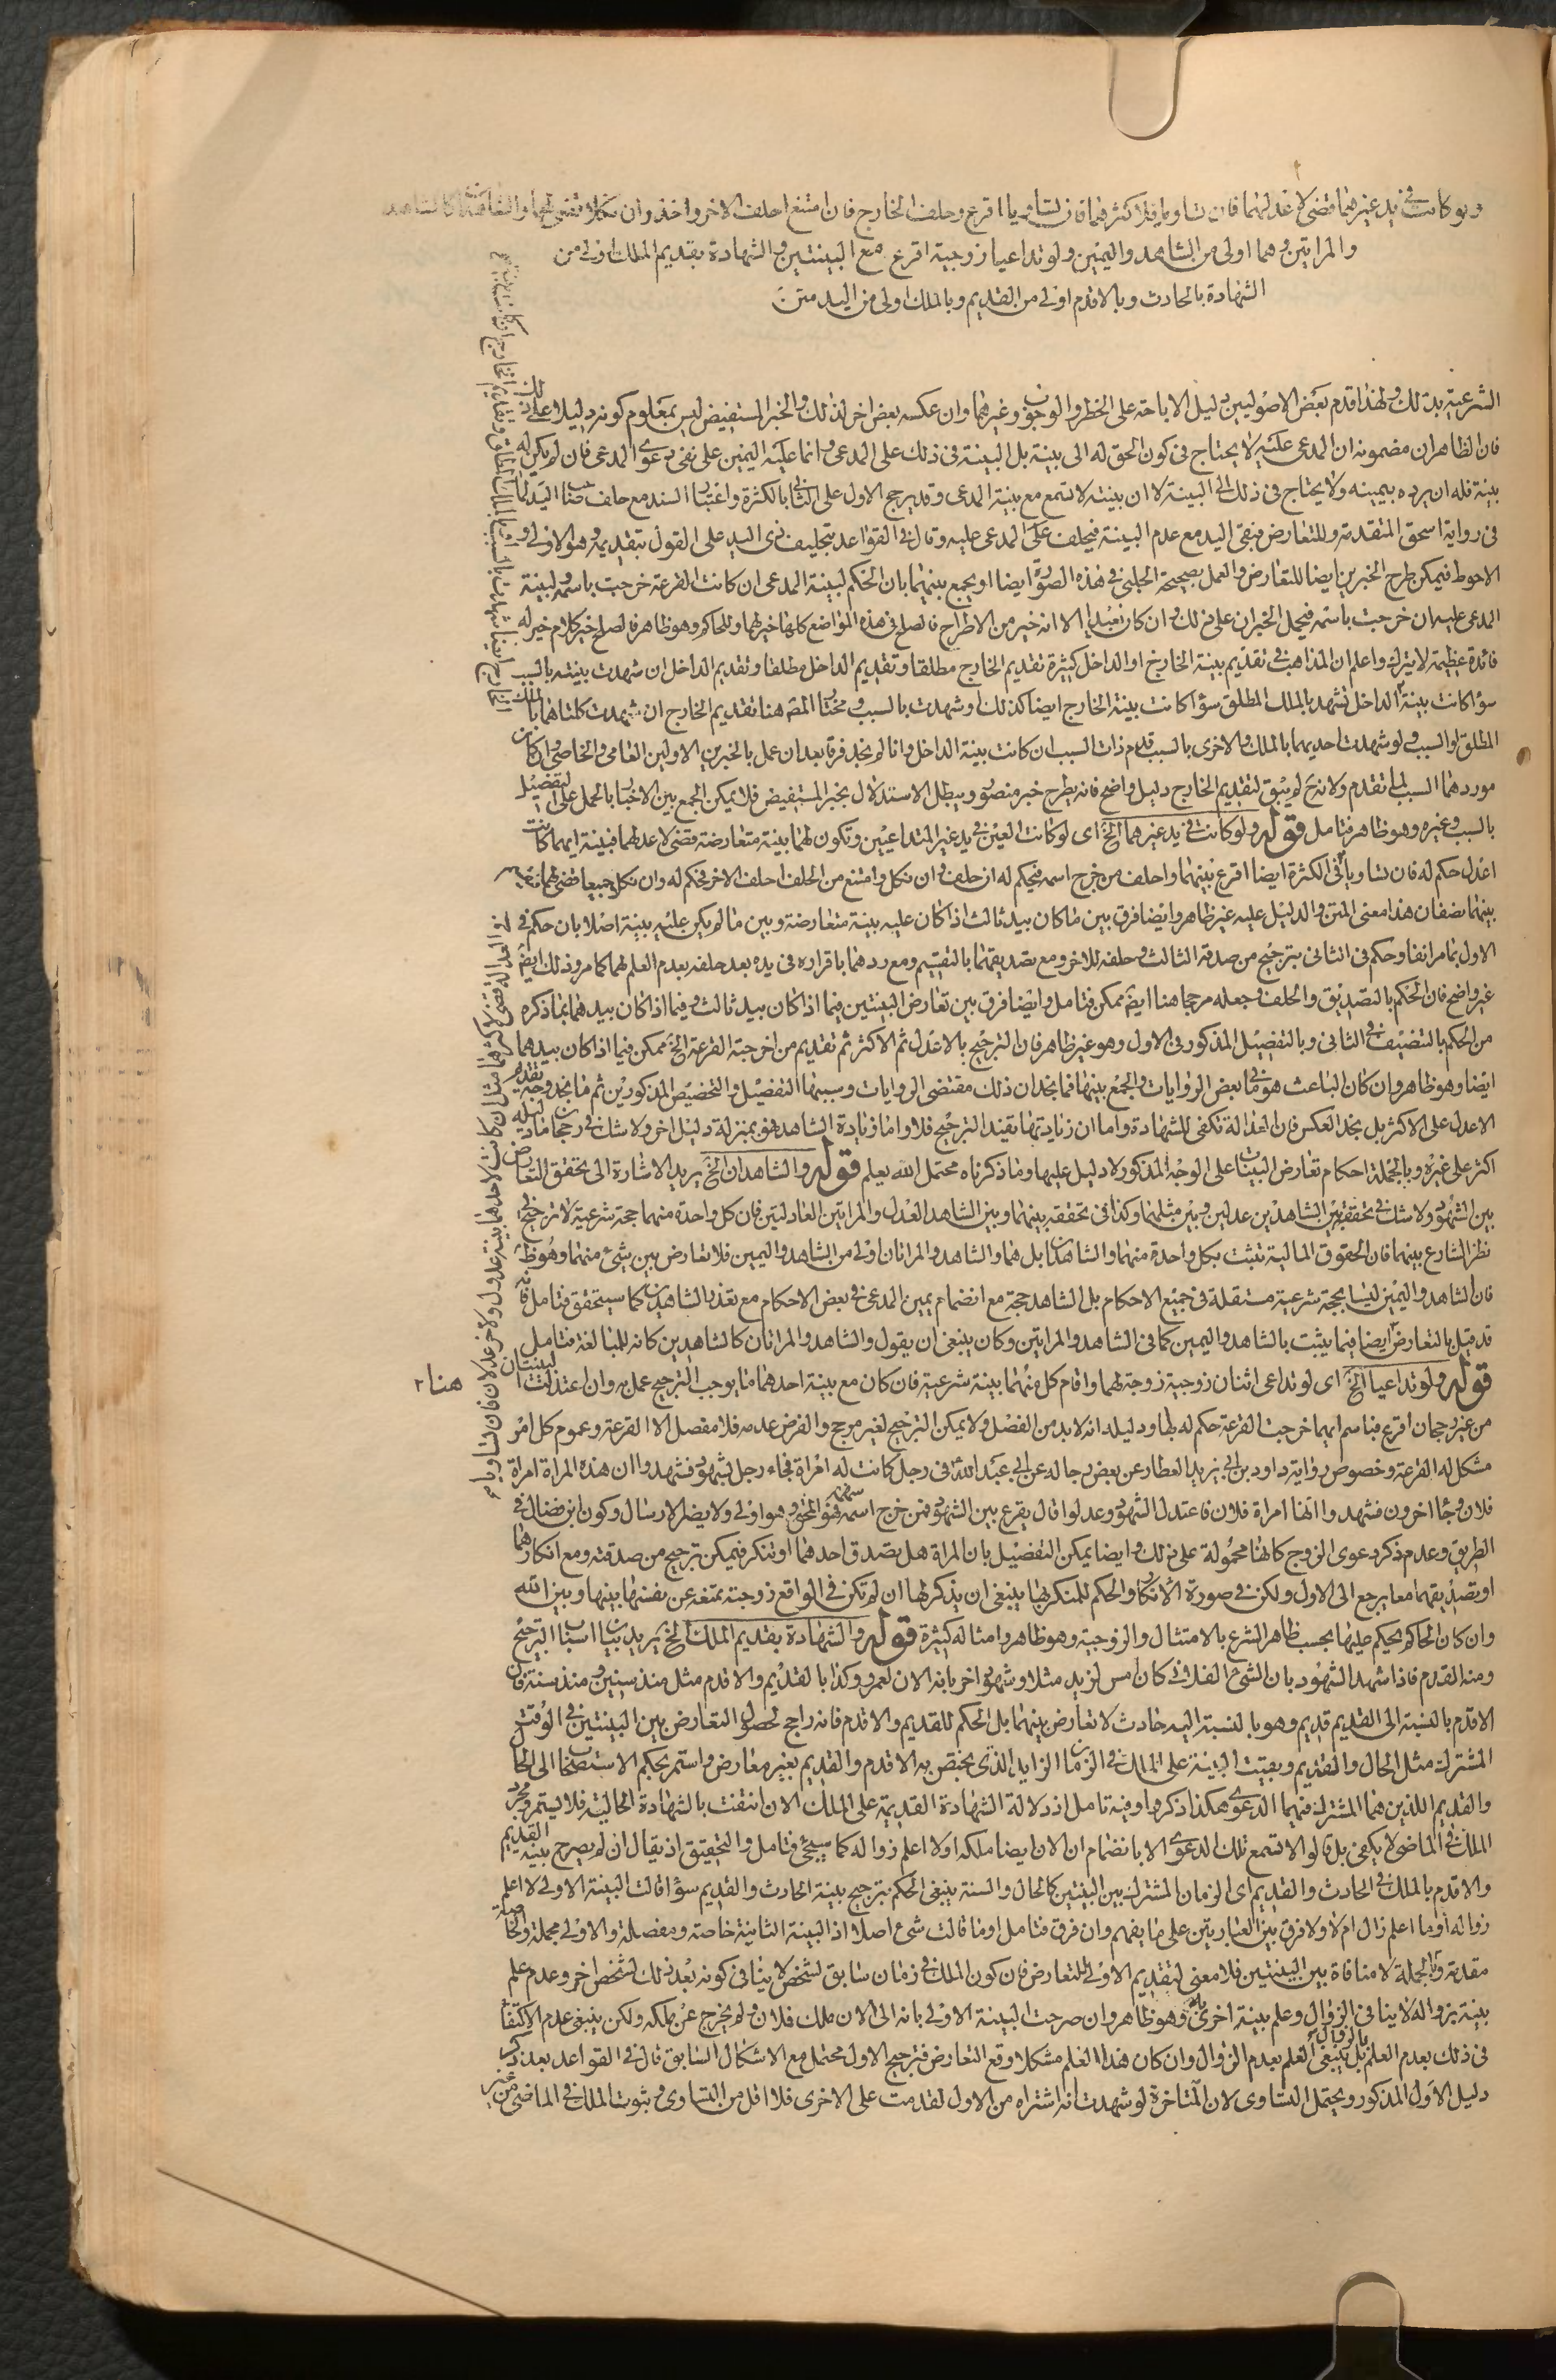 ولو كانت في يد غيرهما قضى لاعدلهما فان تساويا فلاكثرهما فان تساويا اقرع وحلف الخارج فان امتنع احلف الاخر واخذ وان نكلا قضى لهما والشاهدان كالشاهد
والمراتين وهما اولى من الشاهد واليمين ولو تداعيا زوجية اقرع مع البينتين والشهادة بقديم الملك اولى من
الشهادة بالحادث وبالاقدم اولى من القديم وبالملك اولى من اليد متن
الشرعية بذلك ولهذا قدم بعض الاصوليين دليل الاباحة على الخطر والوجوب وغيرهما وان عكسه بعض اخر لذلك والخبر المستفيض ليس بمعلوم كونه دليلا على ذلك
فان الظاهر ان مضمونه ان المدعى عليه لا يحتاج في كون الحق له الى بينة بل البينة في ذلك على المدعى وانما عليه اليمين على نفى دعوى المدعى فان لم يكن له
بينة فله ان يرده بيمينه ولا يحتاج في ذلك الى البينة لا ان بينته لا تسمع مع بينة المدعى وقد يرجح الاول على الثاني بالكثرة واعتبار السند مع حلف صاحب اليد كما
في رواية اسحق المتقدمة وللتعارض فبقى اليد مع عدم البينة فيحلف على المدعى عليه وقال في القواعد بتحليف ذى اليد على القول بتقديمه وهو الاولى و
الاحوط فيمكن طرح الخبرين ايضا للتعارض والعمل بصحيحة الحلبي في هذه الصورة ايضا او يجمع بينهما بان الحكم لبينة المدعى ان كانت القرعة خرجت باسمه ولبينة
المدعى عليه ان خرجت باسمه فيحمل الخبران على ذلك وان كان بعيدا الا انه خير من الاطراح فالصلح في هذه المواضع كلها خير لهما وللحاكم وهو ظاهر فالصلح خير كلام خير له
فائدة عظيمة لا يترك واعلم ان المذاهب في تقديم بينة الخارج او الداخل كثيرة تقديم الخارج مطلقا وتقديم الداخل مطلقا وتقديم الداخل ان شهدت بينته بالسبب
سواء كانت بينة الداخل تشهد بالملك المطلق سواء كانت بينة الخارج ايضا كذلك او شهدت بالسبب ومختار المصه هنا تقديم الخارج ان شهدت كلتاهما بالملك
المطلق او السبب ولو شهدت احديهما بالملك والاخرى بالسبب قدم ذات السبب ان كانت بينة الداخل وانا لم نجد فرقا بعد ان عمل بالخبرين الاولين العامى والخاصى وان كان
موردهما السبب لما تقدم ولانه لم يبق لتقديم الخارج دليل واضح فانه يطرح خبر منصور ويبطل الاستدلال بخبر المستفيض فلا يمكن الجمع بين الاخبار بالحمل على التفصيل
بالسبب وغيره وهو ظاهر فتامل قوله ولو كانت في يد غيرهما الخ اى لو كانت العين في يد غير المتداعيين وتكون لهما بينة متعارضة قضى لاعدلهما فبينة ايهما كانت
اعدل حكم له فان تساويا في الكثرة ايضا اقرع بينهما واحلف من خرج اسمه فيحكم له ان حلف وان نكل وامتنع من الحلف احلف الاخر فحكم له وان نكل جميعا قضى لهما
بينهما نصفان هذا معنى المتن والدليل عليه غير ظاهر وايضا فرق بين ما كان بيد ثالث اذا كان عليه بينة متعارضة وبين ما لم يكن عليه بينة اصلا بان حكم في
الاول بما مر انفا وحكم في الثاني بترجيح من صدقه الثالث وحلفه للاخر ومع تصديقهما بالتقسيم ومع ردهما باقراره في يده بعد حلفه بعدم العلم لهما كما مر وذلك ايضا
غير واضح فان الحكم بالتصديق والحلف وجعله مرجحا هنا ايضا ممكن فتامل وايضا فرق بين تعارض البينتين فيما اذا كان بيد ثالث وفيما اذا كان بيدهما بما ذكره
من الحكم بالتنصيف في الثاني وبالتفصيل المذكور في الاول وهو غير ظاهر فان الترجيح بالاعدل ثم الاكثر ثم تقديم من اخرجته القرعة الخ ممكن فيما اذا كان بيدهما
ايضا وهو ظاهر وان كان الباعث هو ما في بعض الروايات والجمع بينهما فما نجد ان ذلك مقتضى الروايات وسببها التفصيل والتخصيص المذكورين ثم ما نجد وجه تقديم
الاعدل على الاكثر بل نجد العكس فان العدالة تكفى للشهادة واما ان زيادتها يفيد الترجيح فلا واما زيادة الشاهد فهو بمنزلة دليل اخر ولا شك في رجحان ما دليله
اكثر على غيره وبالجملة احكام تعارض البينات على الوجه المذكور لا دليل عليها وما ذكرناه محتمل الله يعلم قوله والشاهدان الخ يريد الاشارة الى تحقق التعارض
بين الشهود ولا شك في تحققه بين الشاهدين عدلين وبين مثلهما وكذا في تحققه بينهما وبين الشاهد العدل والمراتين العادلتين فان كل واحدة منهما حجة شرعية لا ترجيح
نظر الشارع بينهما فان الحقوق المالية تثبت بكل واحدة منهما والشاهدان بل هما والشاهد والمراتان اولى من الشاهد واليمين فلا تعارض بين شئ منهما وهو ظ
فان الشاهد واليمين ليسا بحجة شرعية مستقلة في جميع الاحكام بل الشاهد حجة مع انضمام يمين المدعى في بعض الاحكام مع تعذر الشاهدين كما سيتحقق فتامل فانه
قد قيل بالتعارض ايضا فيما يثبت بالشاهد واليمين كما في الشاهد والمراتين وكان ينبغى ان يقول والشاهد والمراتان كالشاهدين كانه للمبالغة فتامل
قوله ولو تداعيا الخ اى لو تداعى اثنان زوجية زوجة لهما واقام كل منهما بينة شرعية فان كان مع بينة احدهما ما يوجب الترجيح عمل به وان اعتدلت البينتان
هنا
من غير رجحان اقرع فباسم ايهما خرجت القرعة حكم له بها ودليله انه لا بد من الفصل ولا يمكن الترجيح لغير مرجح والفرض عدمه فلا مفصل الا القرعة وعموم كل امر
مشكل له القرعة وخصوص رواية داود بن ابي يزيد العطار عن بعض رجاله عن ابي عبد الله في رجل كانت له امراة فجاء رجل بشهود فشهدوا ان هذه المراة امراة
فلان وجاء اخرون فشهدوا انها امراة فلان فاعتدل الشهود وعدلوا قال يقرع بين الشهود فمن خرج اسمه فهو المحق وهو اولى ولا يضر الارسال وكون ابن فضال في
الطريق وعدم ذكر دعوى الزوج كانها محمولة على ذلك وايضا يمكن التفصيل بان المراة هل يصدق احدهما او تنكر فيمكن ترجيح من صدقته ومع انكارهما
او تصديقهما معا يرجع الى الاول ولكن في صورة الانكار والحكم للمنكر بها ينبغى ان يذكر لها ان لم تكن في الواقع زوجته تمتعه عن نفسها بينها وبين الله
وان كان الحاكم يحكم عليها بحسب ظاهر الشرع بالامتثال والزوجية وهو ظاهر وامثاله كثيرة قوله والشهادة بقديم الملك الخ يريد بيان اسباب الترجيح
ومنه القدم فاذا شهد الشهود بان الشئ الفلاني كان امس لزيد مثلا وشهود اخر بانه الان لعمرو وكذا بالقديم والاقدم مثل منذ سنين ومنذ سنة فان
الاقدم بالنسبة الى القديم قديم وهو بالنسبة اليه حادث لا تعارض بينهما بل الحكم للقديم والاقدم فانه راجح لحصول التعارض بين البينتين في الوقت
المشترك مثل الحال والقديم وبقيت البينة على الملك في الزمان الزايد الذى يختص به الاقدم والقديم بغير معارض واستمر بحكم الاستصحاب الى الحال
والقديم اللذين هما المشترك فيهما الدعوى هكذا ذكروا وفيه تامل اذ دلالة الشهادة القديمة على الملك الان انتفت بالشهادة الحالية فلا يستمر ومجرد
الملك في الماضى لا يكفى بل قالوا لا تسمع تلك الدعوى الا بانضمام ان الان ايضا ملكه او لا اعلم زواله كما سيجئ فتامل والتحقيق ان يقال ان لم يصرح بينة القديم
والاقدم بالملك في الحادث والقديم اى الزمان المشترك بين البينتين كالحال والسنة ينبغى الحكم بترجيح بينة الحادث والقديم سواء قالت البينة الاولى لا اعلم
زواله او ما اعلم زال ام لا ولا فرق بين العبارتين على ما يفهم وان فرق فتامل او ما قالت شئ اصلا اذ البينة الثانية خاصة ومفصلة والاولى مجملة والخاصة
مقدمة وبالجملة لا منافاة بين البينتين فلا معنى لتقديم الاولى للتعارض فان كون الملك في زمان سابق لشخص لا ينافى كونه بعد ذلك لشخص اخر وعدم علم
بينة بزواله لا ينافى الزوال وعلم بينة اخرى به وهو ظاهر وان صرحت البينة الاولى بانه الى الان ملك فلان ولم يخرج عن ملكه ولكن ينبغى عدم الاكتفاء
في ذلك بعدم العلم بالزوال بل ينبغى العلم بعدم الزوال وان كان هذا العلم مشكلا وقع التعارض فترجيح الاول محتمل مع الاشكال السابق قال في القواعد بعد ذكر
دليل الاول المذكور ويحتمل التساوى لان المتاخرة لو شهدت انه اشتراه من الاول لقدمت على الاخرى فلا اقل من التساوى وثبوت الملك في الماضى من غير